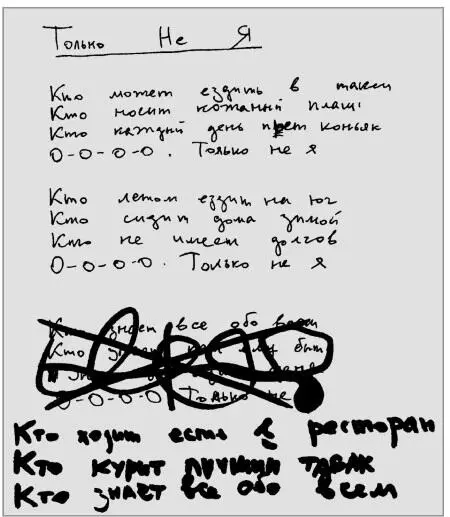 Только Не Я
Кто может ездить в такси
Кто носит кожаный плащ
Кто каждый день пьет коньяк
О-О-О-О. Только не я
Кто летом ездит на юг
Кто сидит дома зимой
Кто не имеет долгов
О-О-О-О. Только не я
Кто знает все обо всем
Кто быть
О-О-О-О Только не
Кто ходит есть в ресторан
Кто курит лучший табак
Кто знает все обо всем